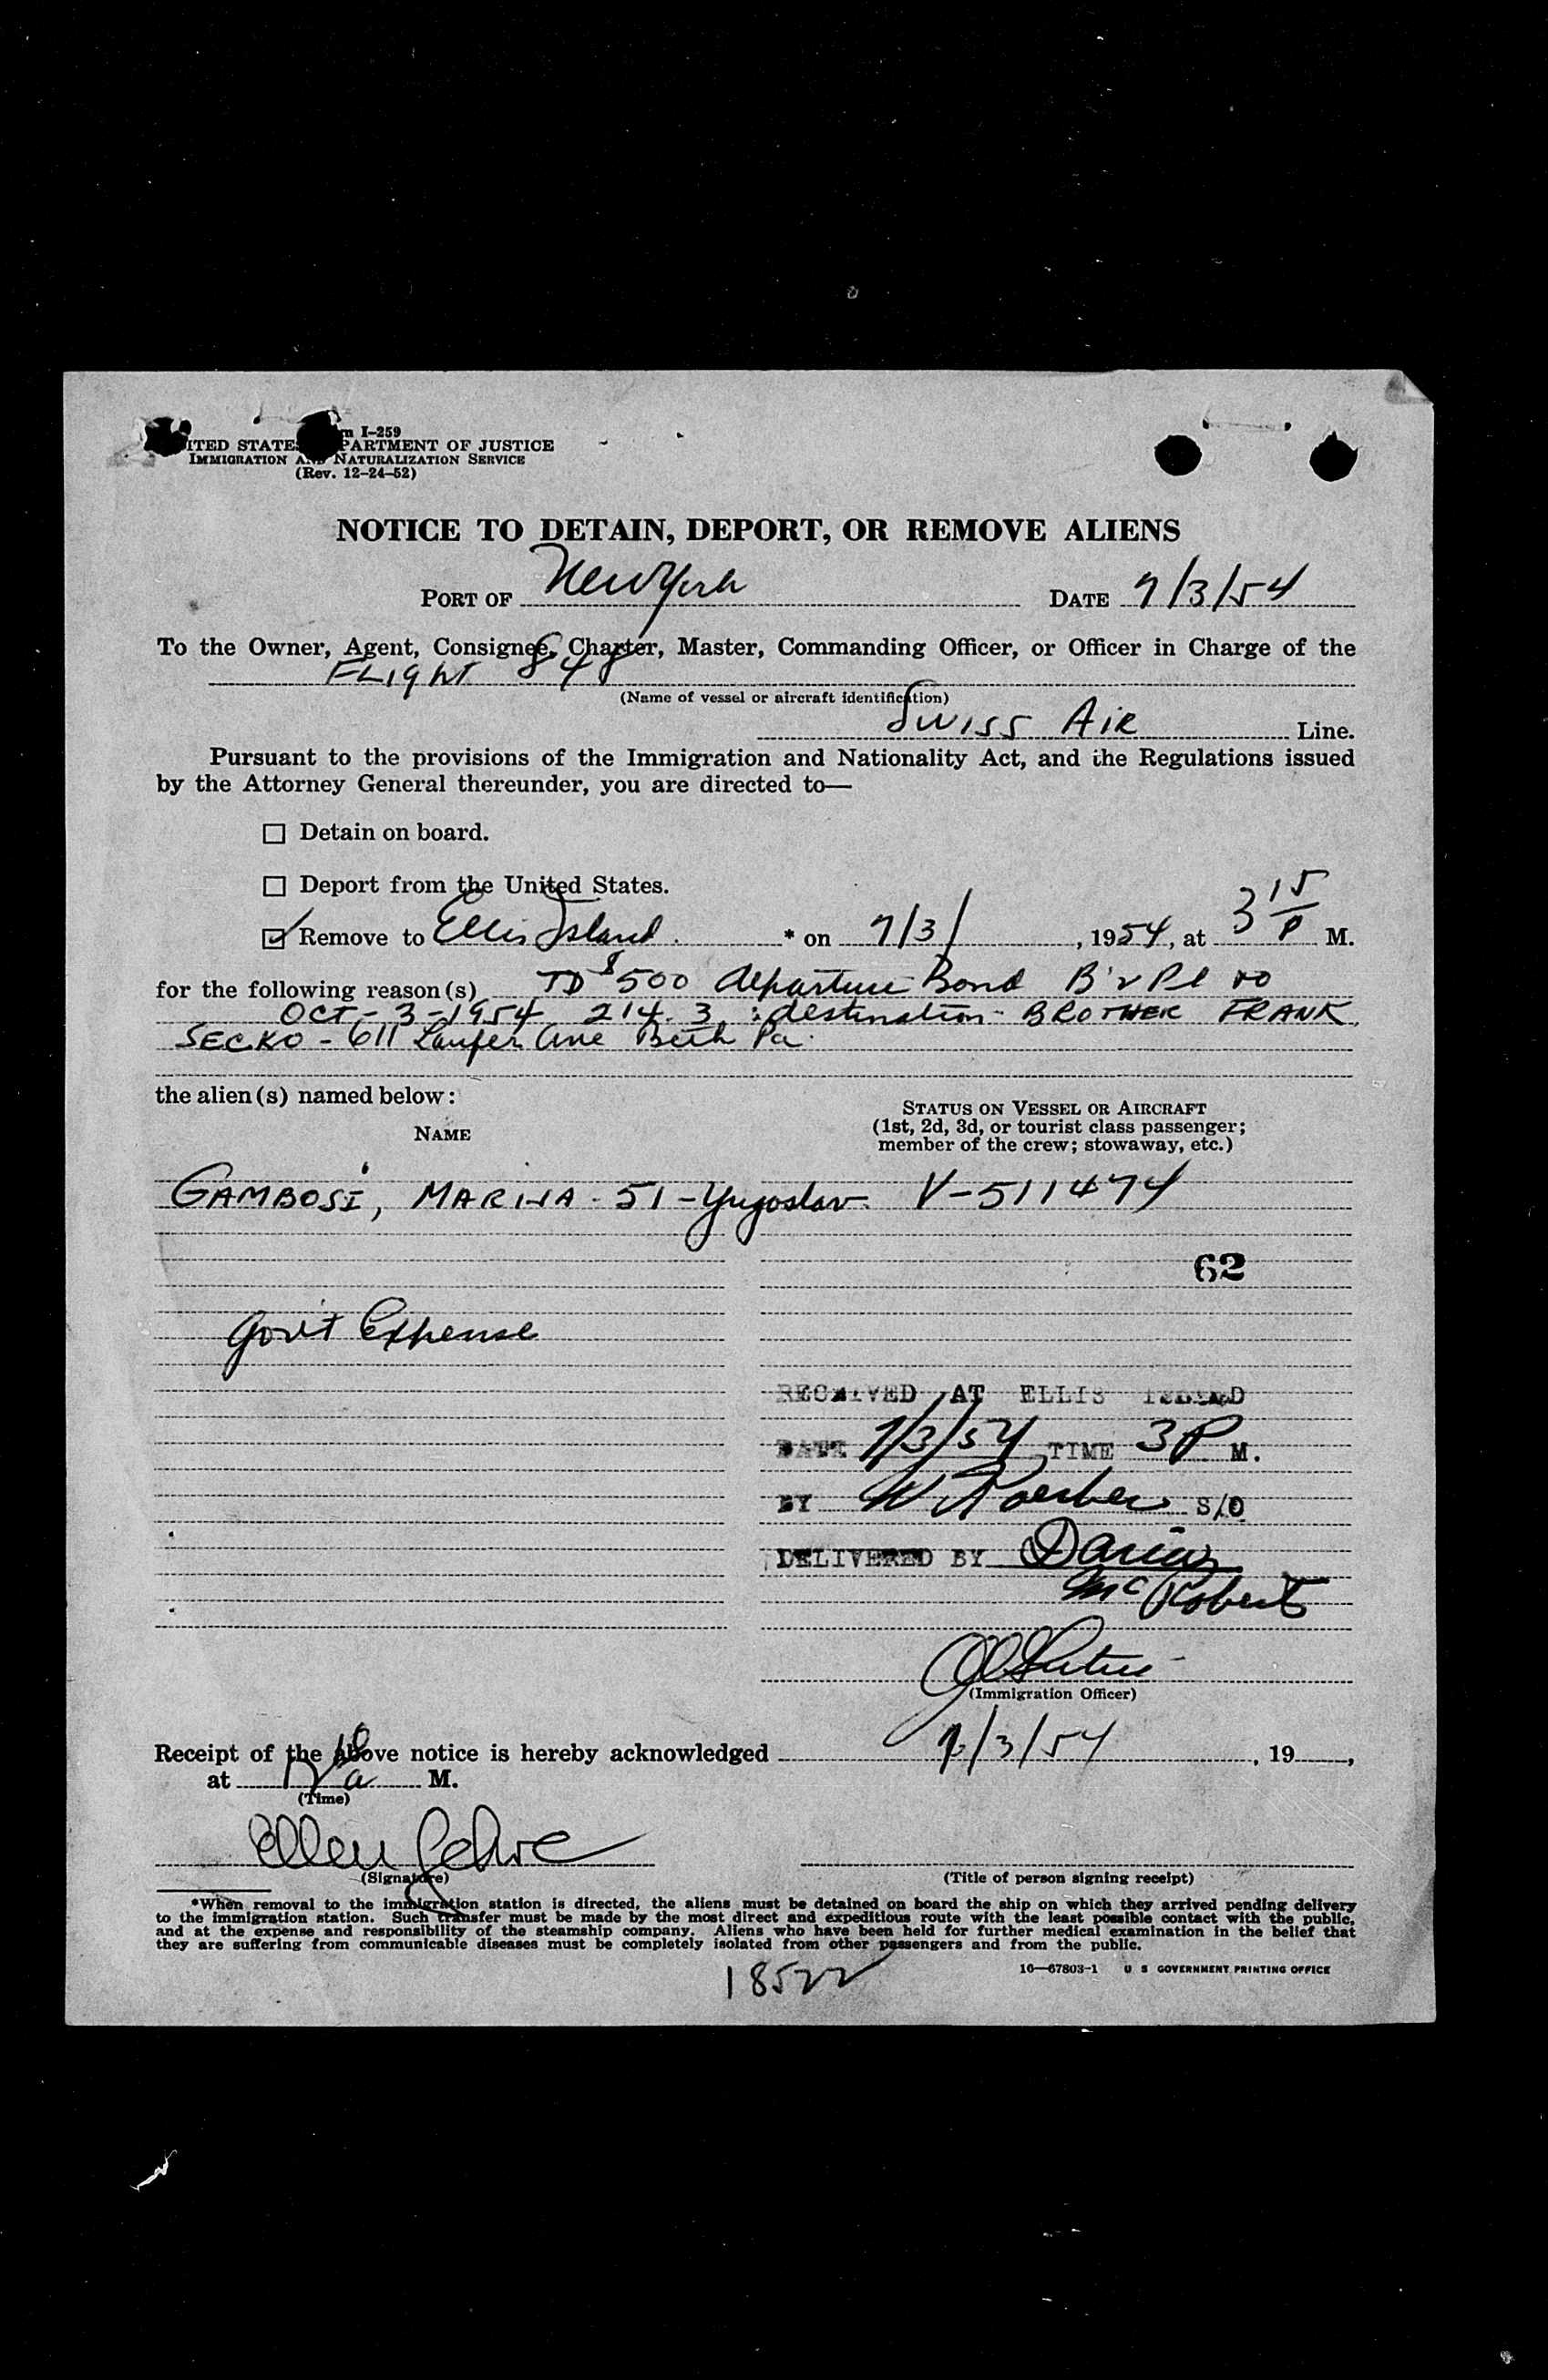 m I-259
ITED STATES PARTMENT OF JUSTICE
IMMIGRATION AND NATURALIZATION SERVICE
(Rev. 12-24-52)
NOTICE TO DETAIN, DEPORT, OR REMOVE ALIENS
PORT OF New York DATE 7/3/54
To the Owner, Agent, Consignee, Charter, Master, Commanding Officer, or Officer in Charge of the
FLIGHT 848
(Name of vessel or aircraft identification)
SWISS AIR Line.
Pursuant to the provisions of the Immigration and Nationality Act, and the Regulations issued
by the Attorney General thereunder, you are directed to—
☐ Detain on board.
☐ Deport from the United States.
☑ Remove to Ellis Island. * on 7/3/, 1954, at 3 15 P M.
for the following reason(s) TD $500 departure Bond B'r Pl to
OCT-3-1954 214.3 : destination- BROTHER FRANK
SECKO - 611 Laufer Ave Beth Pa.
the alien(s) named below:
NAME
STATUS ON VESSEL OR AIRCRAFT
(1st, 2d, 3d, or tourist class passenger;
member of the crew; stowaway, etc.)
GAMBOSI, MARIJA - 51 - Yugoslav. V-511474
62
Gov't Expense
RECEIVED AT ELLIS ISLAND
DATE 7/3/54 TIME 3 P M.
BY W S/O
DELIVERED BY
McRoberts
(Immigration Officer)
Receipt of the above notice is hereby acknowledged 7/3/54, 19 ,
at 12 10 a M.
(Time)
Ellen
(Signature)
(Title of person signing receipt)
*When removal to the immigration station is directed, the aliens must be detained on board the ship on which they arrived pending delivery
to the immigration station. Such transfer must be made by the most direct and expeditious route with the least possible contact with the public,
and at the expense and responsibility of the steamship company. Aliens who have been held for further medical examination in the belief that
they are suffering from communicable diseases must be completely isolated from other passengers and from the public.
16—67803-1 U S GOVERNMENT PRINTING OFFICE
18522